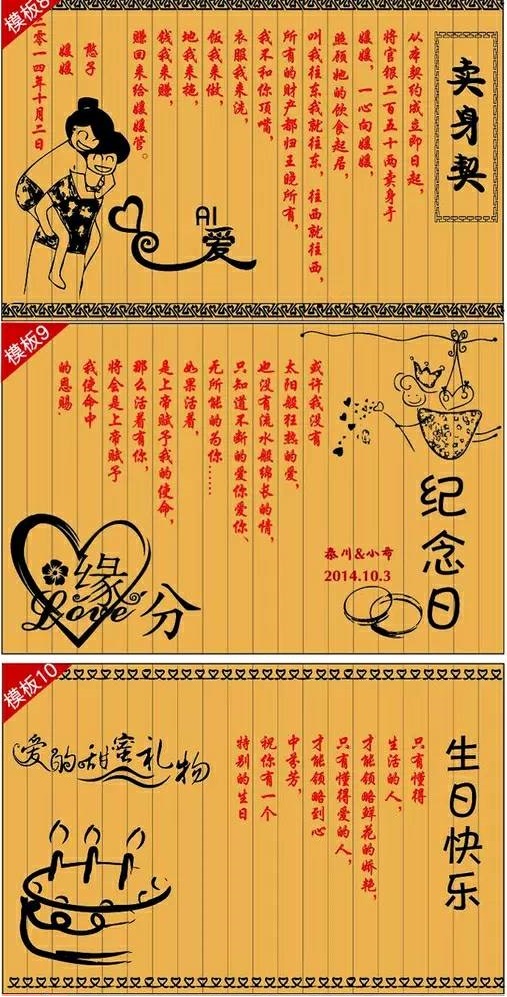 模板8
卖身契
从本契约成立即日起，
将官银二百五十两卖身于
媛媛，一心向媛媛，
照顾她的饮食起居，
叫我往东我就往东，往西就往西，
所有的财产都归王晚所有，
我不和你顶嘴，
衣服我来洗，
饭我来做，
地我来拖，
钱我来赚，
赚回来给媛媛管。
憨子
媛媛
二零一四年十月二日
AI
爱
模板9
纪念日
泰川&小希
2014.10.3
或许我没有
太阳般狂热的爱，
也没有流水般绵长的情，
只知道不断的爱你爱你、
无所能的为你……
如果活着，
是上帝赋予我的使命，
那么活着有你，
将会是上帝赋予
我使命中
的恩赐.
缘分
Love
模板10
生日快乐
只有懂得
生活的人，
才能领略鲜花的娇艳，
只有懂得爱的人，
才能领略到心
中芬芳，
祝你有一个
特别的生日
爱的甜蜜礼物